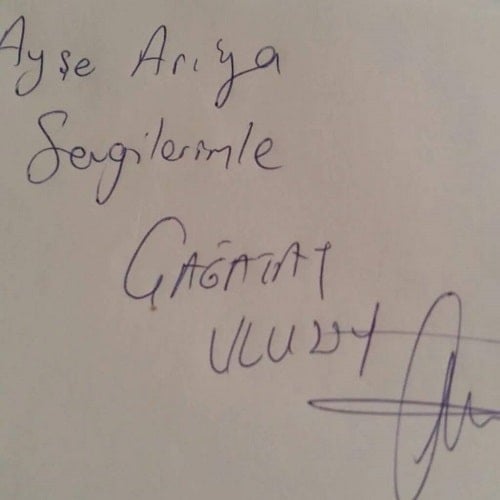 Ayşe Arı'ya
Sevgilerimle
ÇAĞATAY
ULUSOY